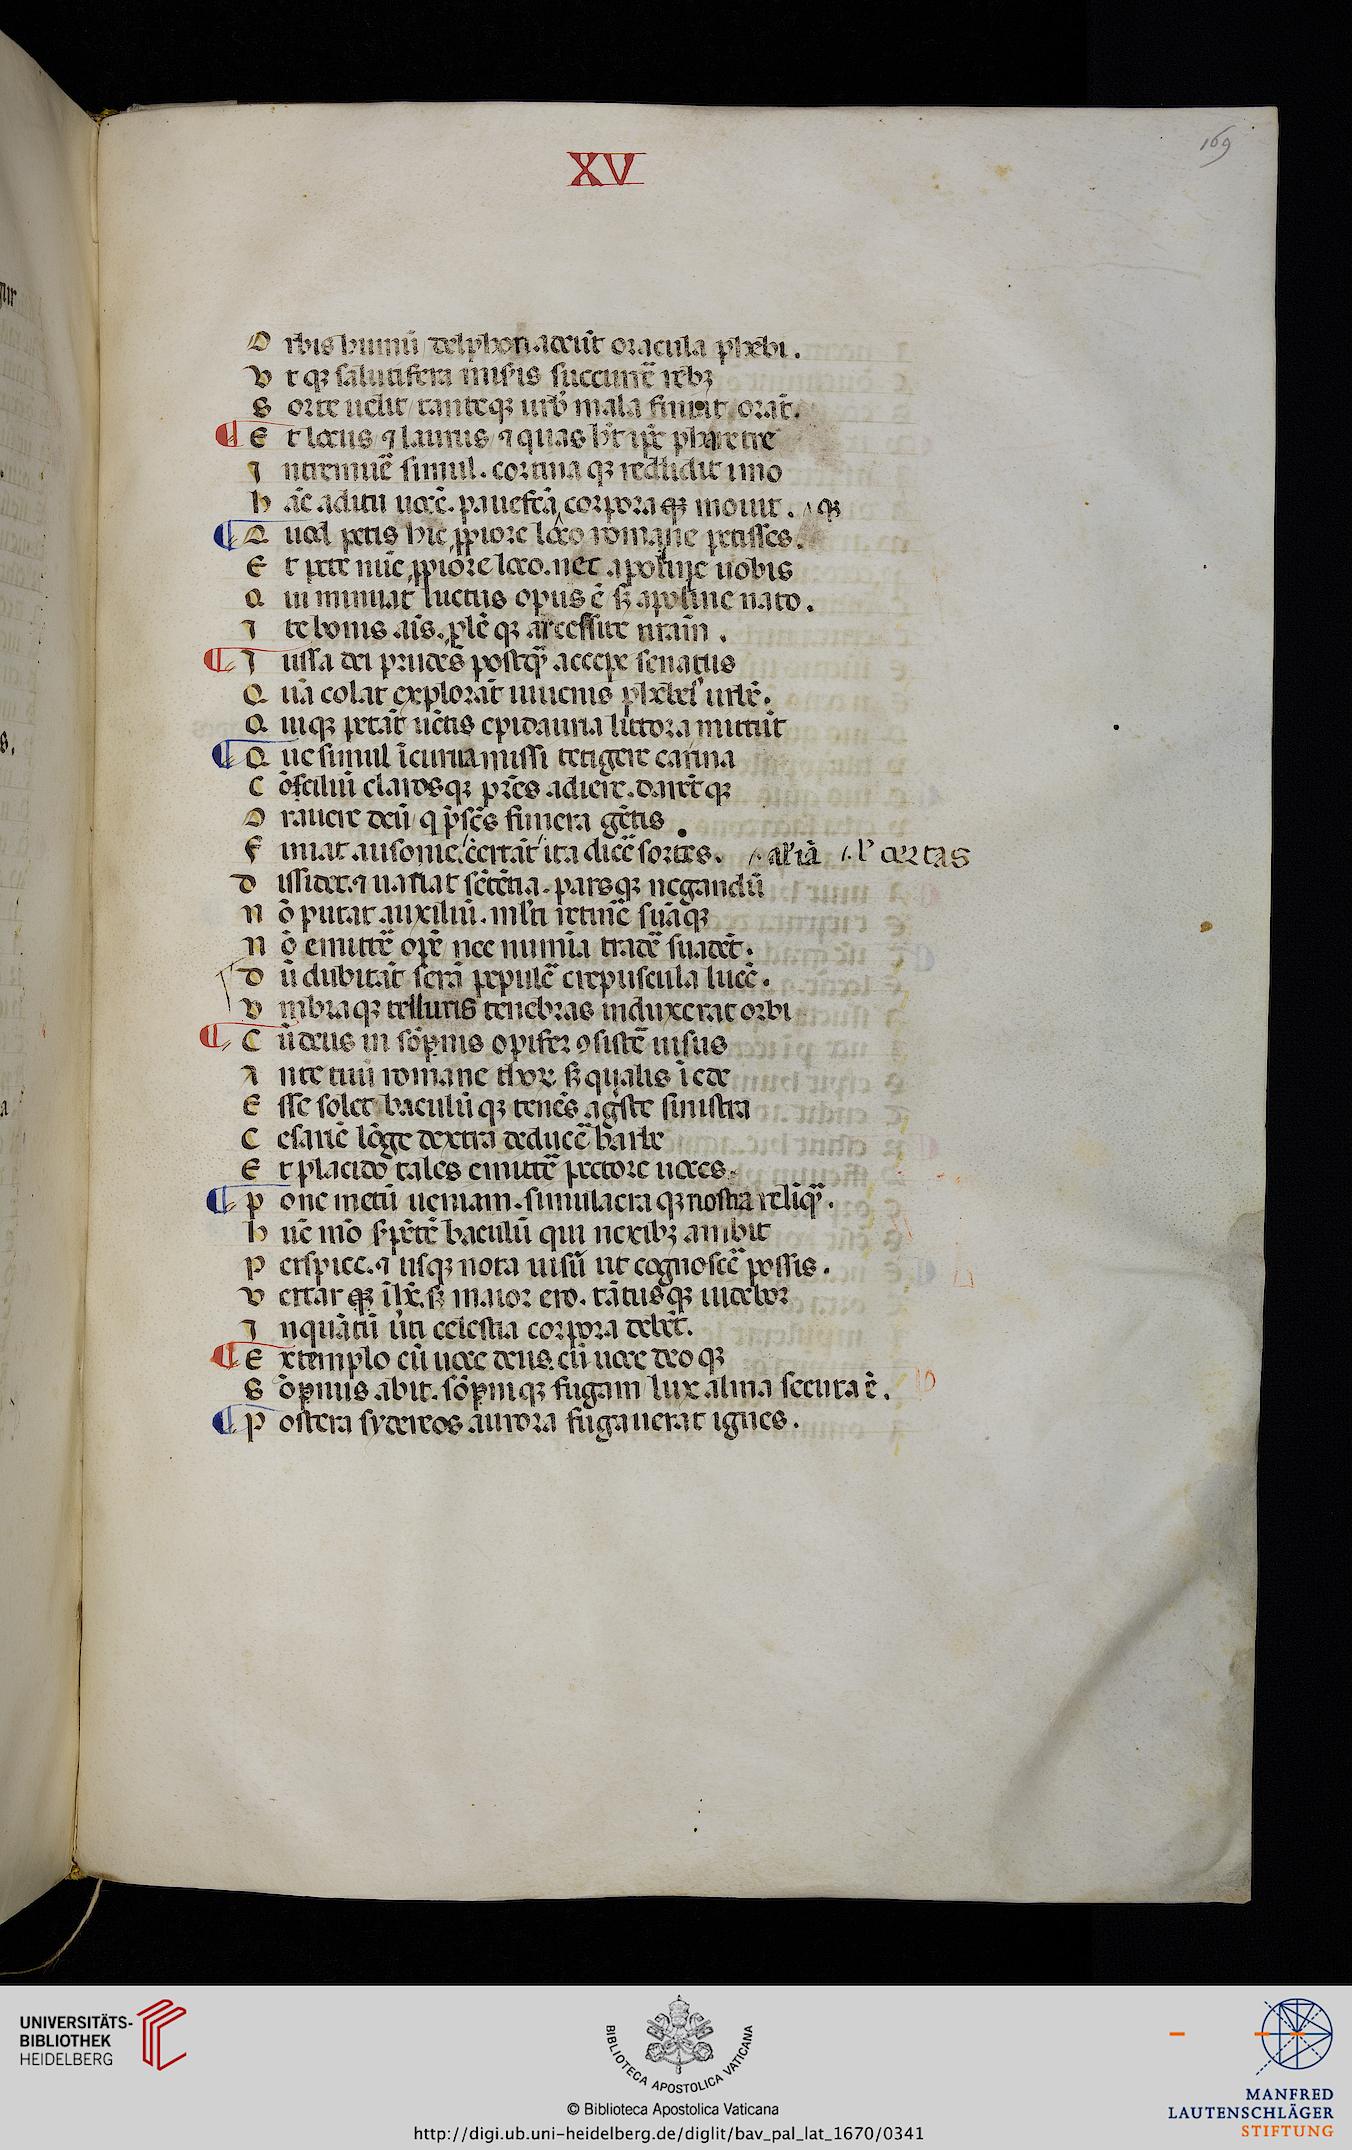 169
XV
O rbis humū delphon adeūt oracula phebi .
V t qꝫ salutifera miſis succurrē rebꝫ
S orte uelit / tanteqꝫ urb̄ mala finiat orāt .
¶ E t locus / ⁊ laurus / ⁊ quas hꝫt ip̄e pharetre
I ntremuē simul . cortina qꝫ reddidit imo
H āc aditu uocē . pauefcā corpora qꝫ mouit . qꝫ
¶ Q uod petis hic ꝓpiore loco romane petisses .
E t pete nūc ꝓpiore loco . nec apoline uobis
Q ui minuat luctus opus ē sꝫ apoline nato .
I te bonis aīs . ꝓlē qꝫ arcessite nr̄am .
¶ I ussa dei prudēs postqꝫ accepe senatus
Q uā colat explorāt iuuenis phebeiꝰ urbē .
Q uiqꝫ petāt uētis epidauria littora mittūt
¶ Q ue simul īcurua missi tetigere carina
C ōsciliū clarosqꝫ pr̄es adiere . darētqꝫ
O rauere deū q̄ p̄sēs funera gētis
F iniat ausonie / certāt ita dicē sortes . al' iā .l' certas
D issidet . ⁊ uariat sētētia . parsqꝫ negandū
N ō putat auxiliū . ml'ti retinē suāqꝫ
N ō emittē opē nec numīa tradē suadēt .
D ū dubitāt serā pepulē crepuscula lucē .
V mbraqꝫ telluris tenebras induxerat orbi
¶ C ū deus in sōpnis opifer ꝯsistē uisus
A nte tuū romane thoꝝ . sꝫ qualis ī ede
E sse solet baculū qꝫ tenēs ag̊ste sinistra
C esariē lōge dextra deducē barbe
E t placido tales emittē pectore uoces .
¶ P one metū ueniam . simulacra qꝫ nostra relīqꝫ .
H ūc mō sꝑpētē baculū qui nexibꝫ ambit
P erspice . ⁊ usqꝫ nota uisū ut cognoscē possis .
V ertar qꝫ ī hꝫc . sꝫ maior ero . tātusqꝫ uidebor
I nquātū ūti celestia corpora debēt .
¶ E xtemplo cū uoce deus . cū uoce deo qꝫ
S ōpnus abit . sōpniqꝫ fugam lux alma secuta ē .
¶ P ostera sydereos aurora fugauerat ignes .
UNIVERSITÄTS-
BIBLIOTHEK
HEIDELBERG
BIBLIOTECA APOSTOLICA VATICANA
© Biblioteca Apostolica Vaticana
http://digi.ub.uni-heidelberg.de/diglit/bav_pal_lat_1670/0341
MANFRED
LAUTENSCHLÄGER
STIFTUNG